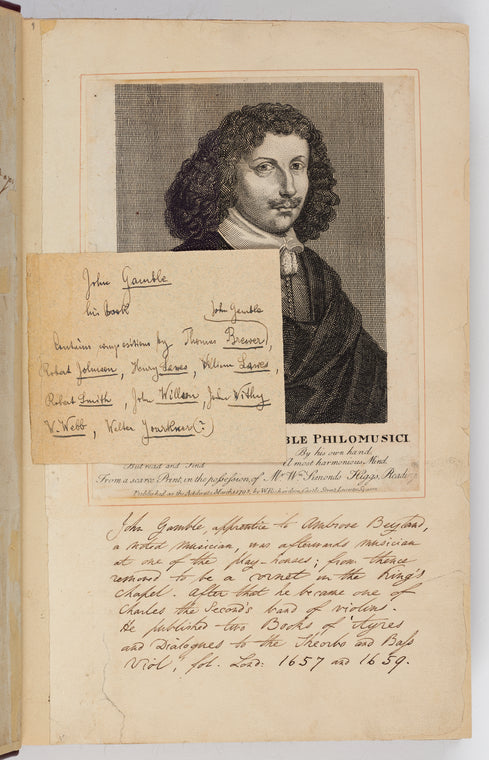 John Gamble
his book
John Gamble
Contains compositions by Thomas Brewer,
Robert Johnson, Henry Lawes, William Lawes,
Robert Smith, John Willson, John Withy
W. Webb, Walter Yourkney(?)
BLE PHILOMUSICI.
By his own hand,
But read and find A most harmonious Mind.
From a scarce Print, in the possession, of Mr. Wm. Simonds Higgs, Reading
Published as the Act directs March 1793, by W. Richardson, Castle Street, Leicester Square
John Gamble, apprentice to Ambrose Beyland,
a noted musician, was afterwards musician
at one of the play-houses; from thence
removed to be a cornet in the King's
chapel. After that he became one of
Charles the Second's band of violins.
He published two Books of "Ayres
and Dialogues to the Theorbo and Bass
Viol," fol. Lond: 1657 and 1659.